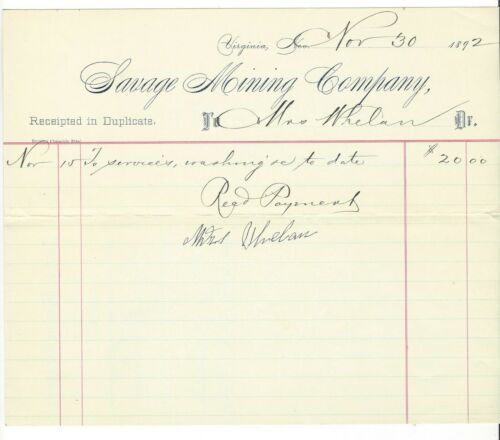 Virginia, Nev. Nov 30 1892
Savage Mining Company,
Receipted in Duplicate. To Mrs Whelan Dr.
Nov 15 To services, washing &c to date $ 20 00
Recd Payment
Mrs Whelan